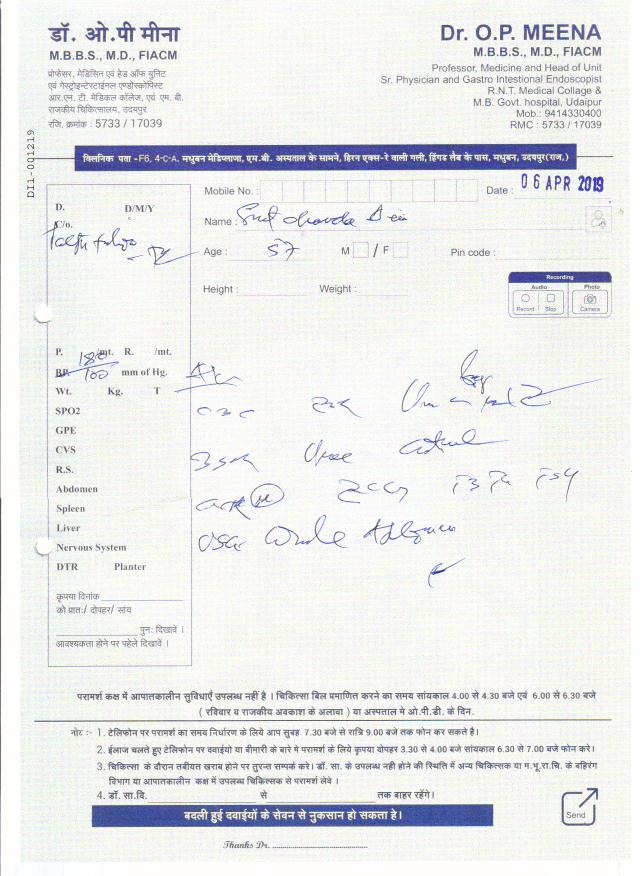 डॉ. ओ.पी मीना
M.B.B.S., M.D., FIACM
प्रोफेसर, मेडिसिन एवं हेड ऑफ यूनिट
एवं गेस्ट्रोइन्टेस्टाईनल एण्डोस्कोपिस्ट
आर.एन.टी. मेडिकल कॉलेज, एवं एम. बी.
राजकीय चिकित्सालय, उदयपुर
रजि. क्रमांक : 5733 / 17039
Dr. O.P. MEENA
M.B.B.S., M.D., FIACM
Professor, Medicine and Head of Unit
Sr. Physician and Gastro Intestional Endoscopist
R.N.T. Medical Collage &
M.B. Govt. hospital, Udaipur
Mob.:9414330400
RMC : 5733 / 17039
DI1-001219
क्लिनिक पता -F6, 4-C-A. मधुबन मेडिप्लाजा, एम.बी. अस्पताल के सामने, हिरन एक्स-रे वाली गली, हिंगड लैब के पास, मधुबन, उदयपुर(राज.)
Mobile No. :
Date : 06 APR 2019
D. D/M/Y
C/o.
Name :
Age : 57 M / F Pin code :
Height : Weight :
Recording
Audio Photo
Record Stop Camera
P. /mt. R. /mt.
BP. 180/100 mm of Hg.
Wt. Kg. T
SPO2
GPE
CVS
R.S.
Abdomen
Spleen
Liver
Nervous System
DTR Planter
CBC
Urea
T3 T4 TSH
USG Whole Abdomen
कृपया दिनांक
को प्रातः/ दोपहर/ सांय
पुनः दिखावें ।
आवश्यकता होने पर पहले दिखावें ।
परामर्श कक्ष में आपातकालीन सुविधाएँ उपलब्ध नहीं है । चिकित्सा बिल प्रमाणित करने का समय सांयकाल 4.00 से 4.30 बजे एवं 6.00 से 6.30 बजे
( रविवार व राजकीय अवकाश के अलावा ) या अस्पताल मे ओ.पी.डी. के दिन.
नोट :- 1. टेलिफोन पर परामर्श का समय निर्धारण के लिये आप सुबह 7.30 बजे से रात्रि 9.00 बजे तक फोन कर सकते है।
2. ईलाज चलते हुए टेलिफोन पर दवाईयो या बीमारी के बारे मे परामर्श के लिये कृपया दोपहर 3.30 से 4.00 बजे सांयकाल 6.30 से 7.00 बजे फोन करे।
3. चिकित्सा के दौरान तबीयत खराब होने पर तुरन्त सम्पर्क करे। डॉ. सा. के उपलब्ध नही होने की स्थिति में अन्य चिकित्सक या म.भू.रा.चि. के बहिरंग
विभाग या आपातकालीन कक्ष में उपलब्ध चिकित्सक से परामर्श लेवे ।
4. डॉ. सा.वि. से तक बाहर रहेंगे।
Send
बदली हुई दवाईयों के सेवन से नुकसान हो सकता हे।
Thanks Dr.